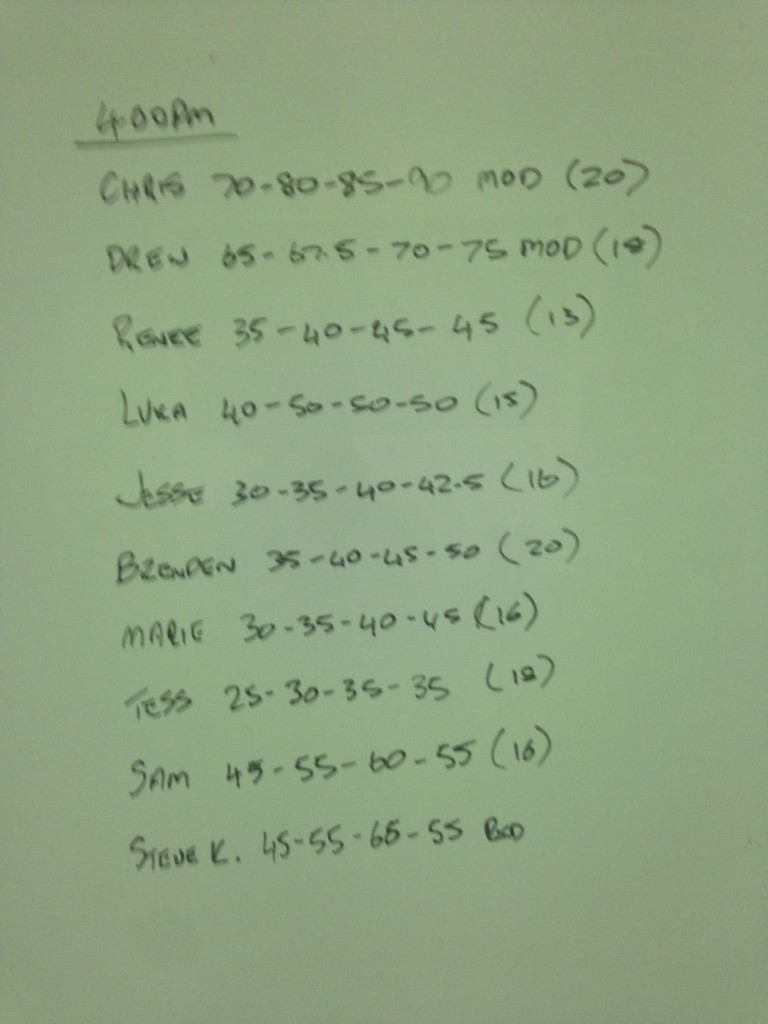 4:00PM
CHRIS 70-80-85-90 MOD (20)
DREW 65-67.5-70-75 MOD (18)
RENEE 35-40-45-45 (13)
LUKA 40-50-50-50 (15)
JESSE 30-35-40-42.5 (16)
BRENDEN 35-40-45-50 (20)
MARIE 30-35-40-45 (16)
TESS 25-30-35-35 (18)
SAM 45-55-60-55 (16)
STEVE K. 45-55-65-55